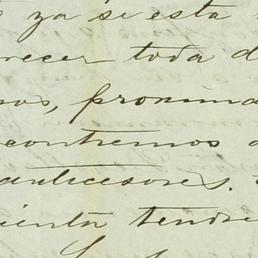 ya se esta
recer toda d
nos, pronuncia
contremos
antecesores.
ienta tendre